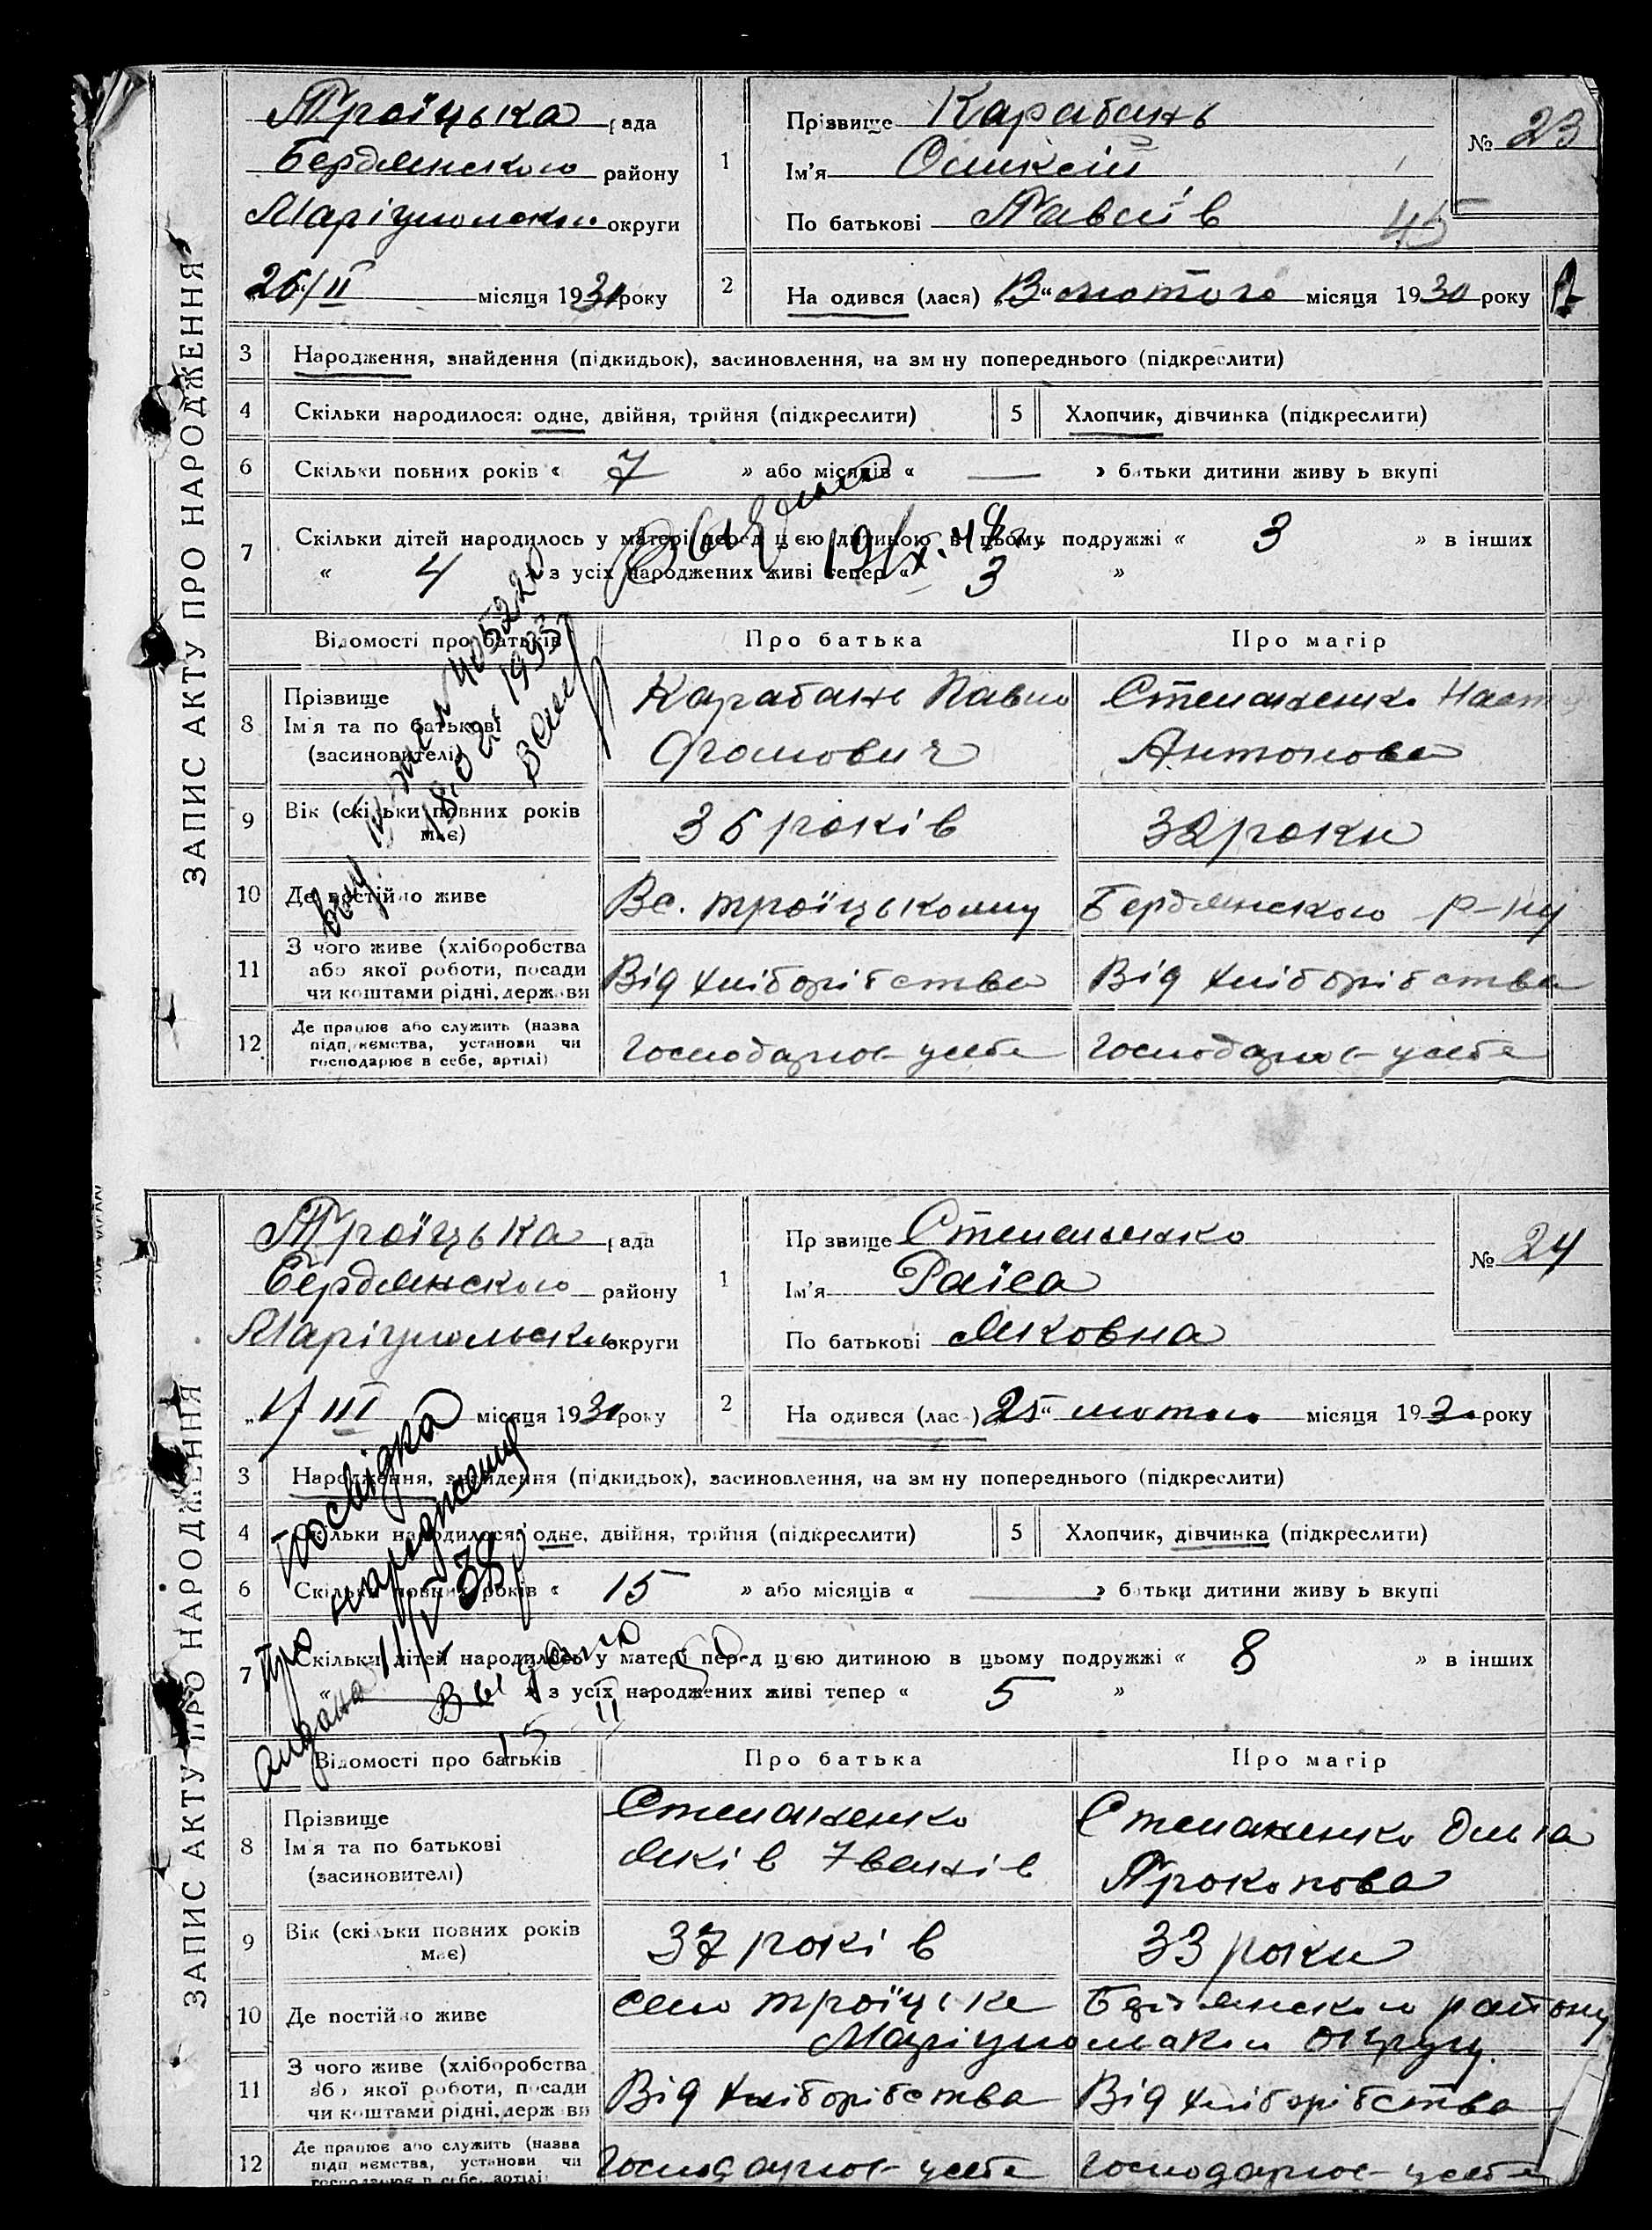 ЗАПИС АКТУ ПРО НАРОДЖЕННЯ
Троїцька рада
Бердянського району
Маріупольськ. округи
26/II місяця 1930 року
1 Прізвище Карабань
Ім'я
По батькові Павлів
№ 23
45
2 На одився (лася) „13“ лютого місяця 1930 року
3 Народження, знайдення (підкидьок), засиновлення, на зм ну попереднього (підкреслити)
4 Скільки народилося: одне, двійня, трійня (підкреслити)
5 Хлопчик, дівчинка (підкреслити)
6 Скільки повних років « 7 » або місяців « — » батьки дитини живу ь вкупі
7 Скільки дітей народилось у матері перед цією дитиною в цьому подружжі « 3 » в інших
« 4 » з усіх народжених живі тепер « 3 »
405220
18.02.1933
Відомості про батьків Про батька Про матір
8 Прізвище
Ім'я та по батькові
(засиновителі)
Карабань Павло
Степаненко
Антонова
9 Вік (скільки повних років має)
36 років 32 роки
10 Де постійно живе
Вс. троїцькому Бердянського р-ну
11 З чого живе (хліборобства
або якої роботи, посади
чи коштами рідні, держави
Від хліборібства Від хліборібства
12 Де працює або служить (назва
підп иємства, установи чи
господарює в себе, артілі)
Господарює усебе Господарює усебе
ЗАПИС АКТУ ПРО НАРОДЖЕННЯ
Троїцька рада
Бердянського району
Маріупольськ. округи
„17 III місяця 1930 року
1 Пр звище Степаненко
Ім'я Раїса
По батькові Яковна
№ 24
2 На одився (лас ) „25“ лютого місяця 1930 року
3 Народження, знайдення (підкидьок), засиновлення, на зм ну попереднього (підкреслити)
4 Скільки народилося: одне, двійня, трійня (підкреслити)
5 Хлопчик, дівчинка (підкреслити)
6 Скільки повних років « 15 » або місяців « — » батьки дитини живу ь вкупі
7 Скільки дітей народилось у матері перед цією дитиною в цьому подружжі « 8 » в інших
« — » з усіх народжених живі тепер « 5 »
Посвідка
про народження
видана 11/V 38р
Выдано
Відомості про батьків Про батька Про матір
8 Прізвище
Ім'я та по батькові
(засиновителі)
Степаненко
Яків Іванів
Степаненко Ольга
Прокопова
9 Вік (скільки повних років має)
37 років 33 роки
10 Де постійно живе
село троїцьке Бердянського району
Маріупольськ. округу.
11 З чого живе (хліборобства
або якої роботи, посади
чи коштами рідні, держ ви
Від хліборібства Від хліборібства
12 Де працює або служить (назва
підп иємства, установи чи
господарює в себе, артілі)
Господарює усебе Господарює усебе